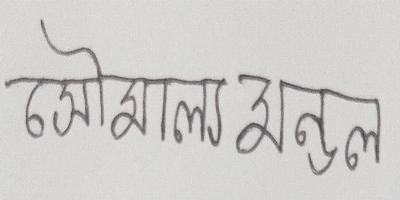 সৌমাল্য মন্ডল